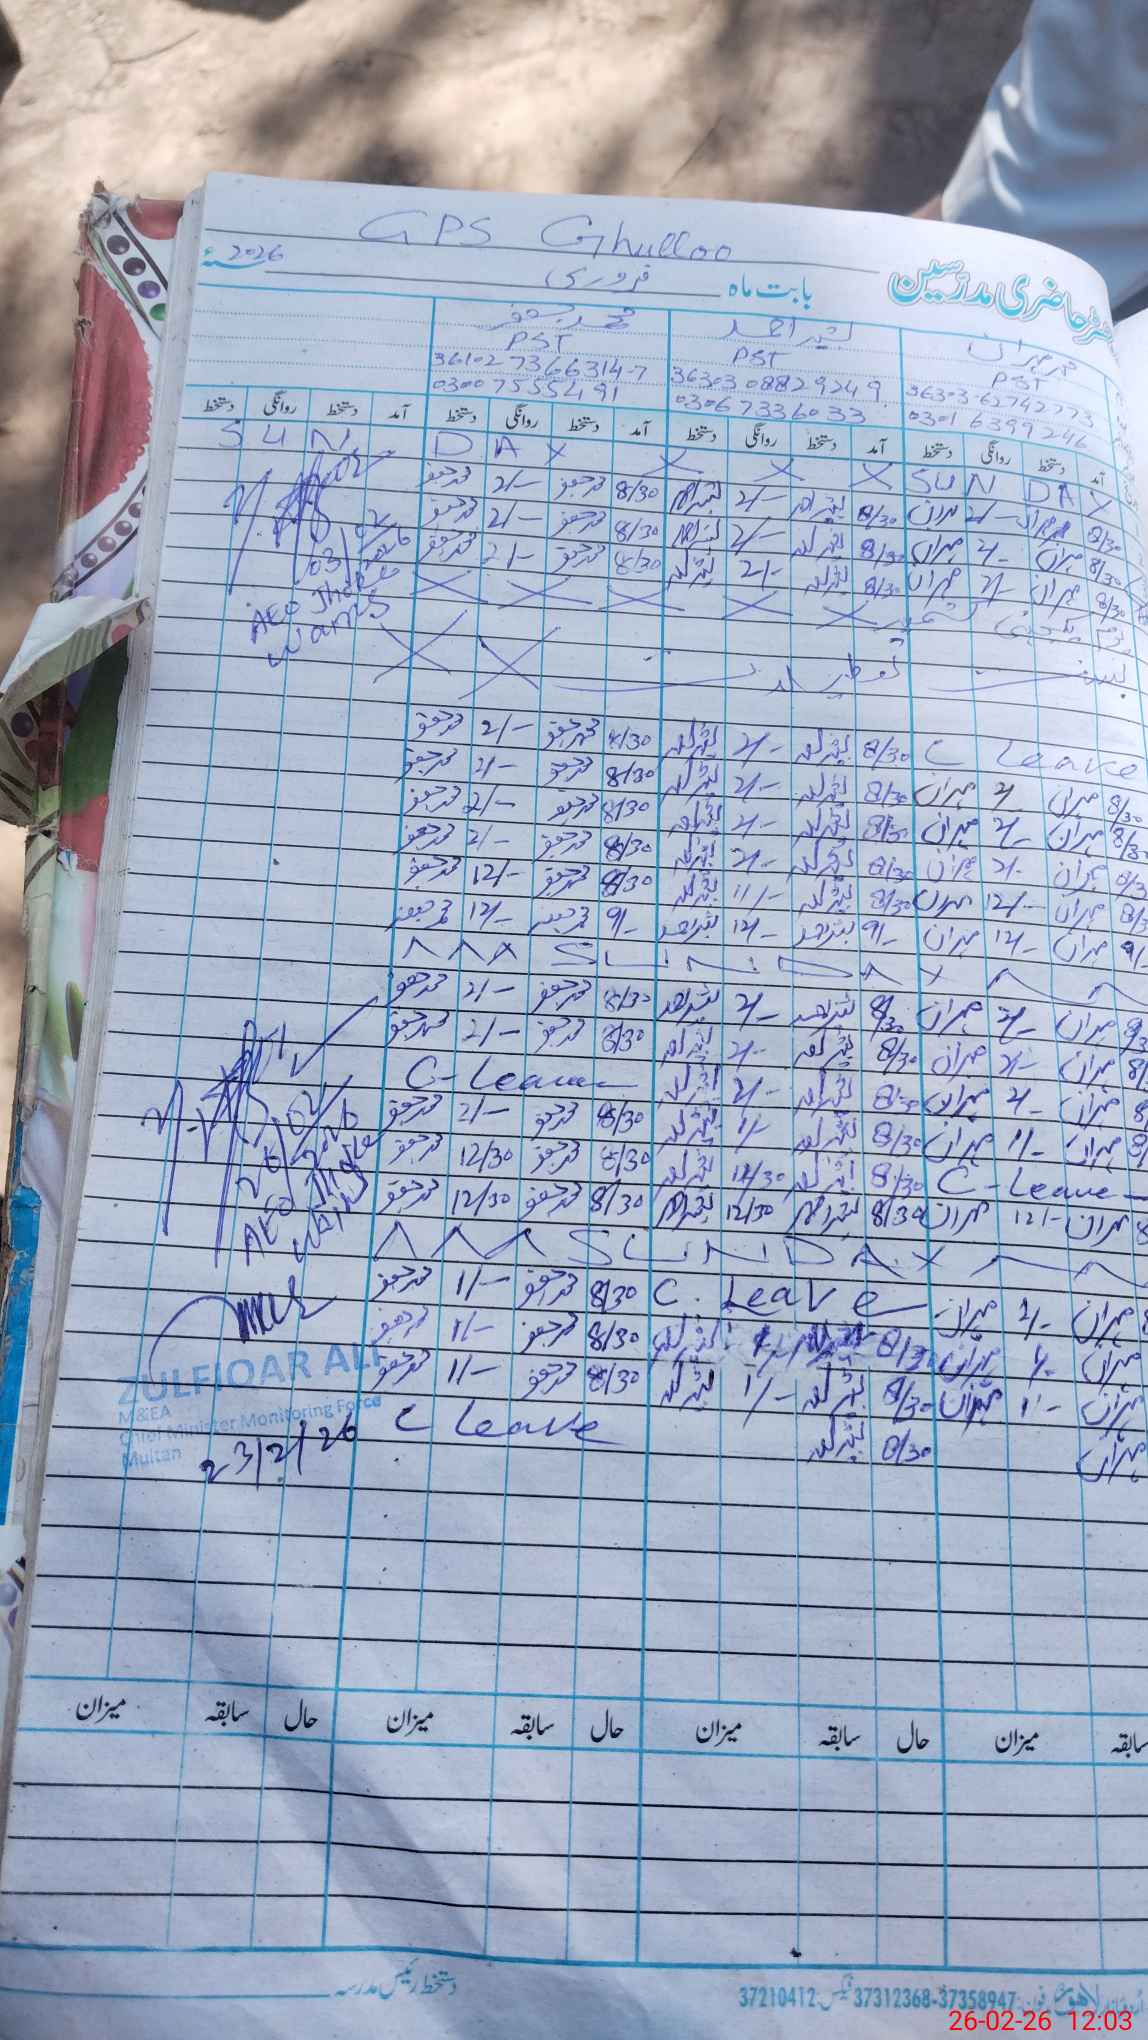 GPS Ghulloo
رجسٹر حاضری مدرسین بابت ماہ فروری 2026
مہران بشیر احمد محمد جعفر
PST PST PST
36303-62742773 36303 08829249 36102 7366314-7
0301 6399246 0306 7336033 0300 7555491
آمد دستخط روانگی دستخط آمد دستخط روانگی دستخط آمد دستخط روانگی دستخط آمد دستخط روانگی دستخط
SUN DAY X X X SUN DAY
8/30 مہران 2/- مہران 8/30 بشیر احمد 2/- بشیر احمد 8/30 محمد جعفر 2/- محمد جعفر
8/30 مہران 2/- مہران 8/30 بشیر احمد 2/- بشیر احمد 8/30 محمد جعفر 2/- محمد جعفر
8/30 مہران 2/- مہران 8/30 بشیر احمد 2/- بشیر احمد 8/30 محمد جعفر 2/- محمد جعفر
03/02/2026
AEO Jhoke Wains
یوم یکجہتی کشمیر X X X X X
بسنت تعطیلات X X
C Leave 8/30 بشیر احمد 2/- بشیر احمد 8/30 محمد جعفر 2/- محمد جعفر
8/30 مہران 2/- مہران 8/30 بشیر احمد 2/- بشیر احمد 8/30 محمد جعفر 2/- محمد جعفر
8/30 مہران 2/- مہران 8/30 بشیر احمد 2/- بشیر احمد 8/30 محمد جعفر 2/- محمد جعفر
8/30 مہران 2/- مہران 8/30 بشیر احمد 2/- بشیر احمد 8/30 محمد جعفر 2/- محمد جعفر
8/30 مہران 12/- مہران 8/30 بشیر احمد 11/- بشیر احمد 8/30 محمد جعفر 12/- محمد جعفر
9/- مہران 12/- مہران 9/- بشیر احمد 12/- بشیر احمد 9/- محمد جعفر 12/- محمد جعفر
SUNDAY
8/30 مہران 2/- مہران 8/30 بشیر احمد 2/- بشیر احمد 8/30 محمد جعفر 2/- محمد جعفر
8/ مہران 2/- مہران 8/30 بشیر احمد 2/- بشیر احمد 8/30 محمد جعفر 2/- محمد جعفر
8/ مہران 2/- مہران 8/30 بشیر احمد 2/- بشیر احمد C-Leave
8/ مہران 1/- مہران 8/30 بشیر احمد 1/- بشیر احمد 8/30 محمد جعفر 2/- محمد جعفر
C-Leave 8/30 بشیر احمد 12/30 بشیر احمد 8/30 محمد جعفر 12/30 محمد جعفر
8 مہران 12/- مہران 8/30 بشیر احمد 12/30 بشیر احمد 8/30 محمد جعفر 12/30 محمد جعفر
02/2026
AEO Jhoke Wains
SUNDAY
مہران 2/- مہران C. Leave 8/30 محمد جعفر 1/- محمد جعفر
مہران 1/- مہران 8/30 8/30 محمد جعفر 1/- محمد جعفر
مہران 1/- مہران 8/30 بشیر احمد 1/- بشیر احمد 8/30 محمد جعفر 1/- محمد جعفر
مہران 8/30 بشیر احمد C Leave
ZULFIQAR ALI
M&EA
Chief Minister Monitoring Force
Multan
23/2/26
سابقہ میزان حال سابقہ میزان حال سابقہ میزان حال سابقہ میزان
دستخط رئیس مدرسہ
لاہور فون: 37358947-37312368 فیکس: 37210412
26-02-26 12:03